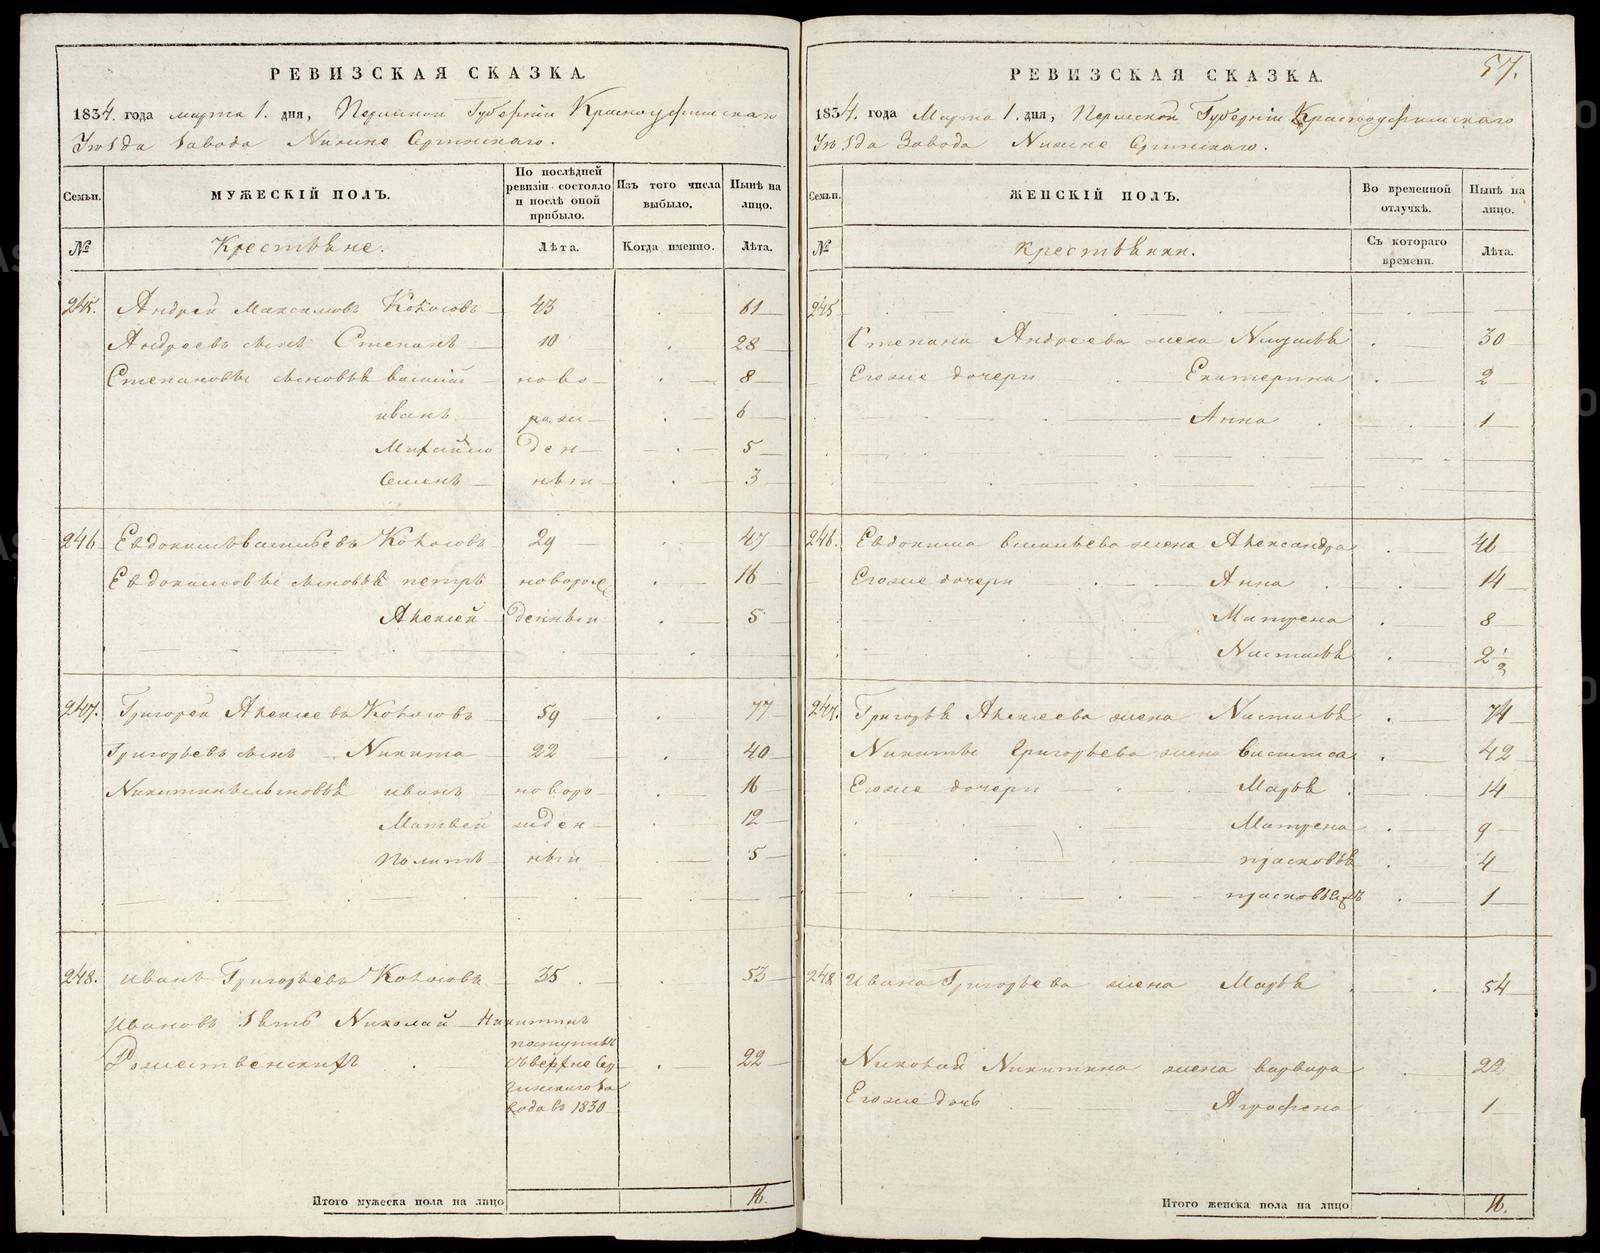 РЕВИЗСКАЯ СКАЗКА.
1834. года марта 1. дня, Пермской Губернiи Красноуфимскаго
Уѣзда Завода Нижне Сергинскаго.
Семьи.
МУЖЕСКIЙ ПОЛЪ.
По послѣдней ревизiи состояло и послѣ оной прибыло.
Изъ того числа выбыло.
Нынѣ на лицо.
№
Крестьяне.
Лѣта.
Когда именно.
Лѣта.
245. Андрей Максимовъ 43 61
Андреевъ сынъ Степанъ 10 28
Степановы сыновья василiй ново 8
иванъ рож 6
Михайло ден 5
Семенъ ныи 3
246 Евдокимъ васильевъ 29 47
Евдокимовы сыновья петръ новорож 16
Алексей денныи 5
247. Григорей Алексеевъ 59 77
Григорьевъ сынъ Никита 22 40
Никитины сыновья иванъ новоро 16
Матвей жден 12
ныи 5
248. иванъ Григорьевъ 35 53
Ивановъ зять Николай Никитинъ
Рожественскихъ поступилъ 22
съ верхне Сер
гинскаго за
вода въ 1830
Итого мужеска пола на лицо 16.
57.
РЕВИЗСКАЯ СКАЗКА.
1834. года Марта 1. дня, Пермской Губернiи Красноуфимскаго
Уѣзда Завода Нижне Сергинскаго.
Семьи.
ЖЕНСКIЙ ПОЛЪ.
Во временной отлучкѣ.
Нынѣ на лицо.
№
крестьянки.
Съ котораго времени.
Лѣта.
245
Степана Андреева жена 30
Егоже дочери Екатерина 2
Анна 1
246. Евдокима васильева жена Александра 46
Егоже дочери Анна 14
Матрена 8
Настасья 2 1/2
247. Григорья Алексеева жена Настасья 74
Никиты Григорьева жена Василиса 42
Егоже дочери Марья 14
Матрена 9
прасковья 4
прасковья 1
248 Ивана Григорьева жена Марья 54
Николая Никитина жена варвара 22
Егоже дочь Аграфена 1
Итого женска пола на лицо 16.